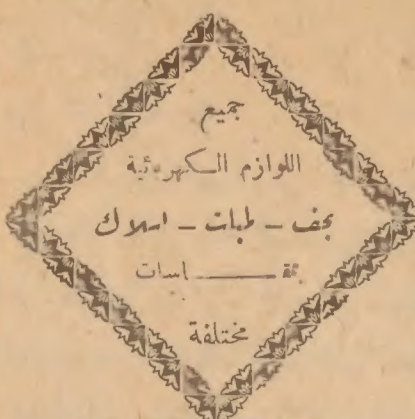 جميع
اللوازم الكهربائية
نجف - لمبات - اسلاك
بمقاسات
مختلفة